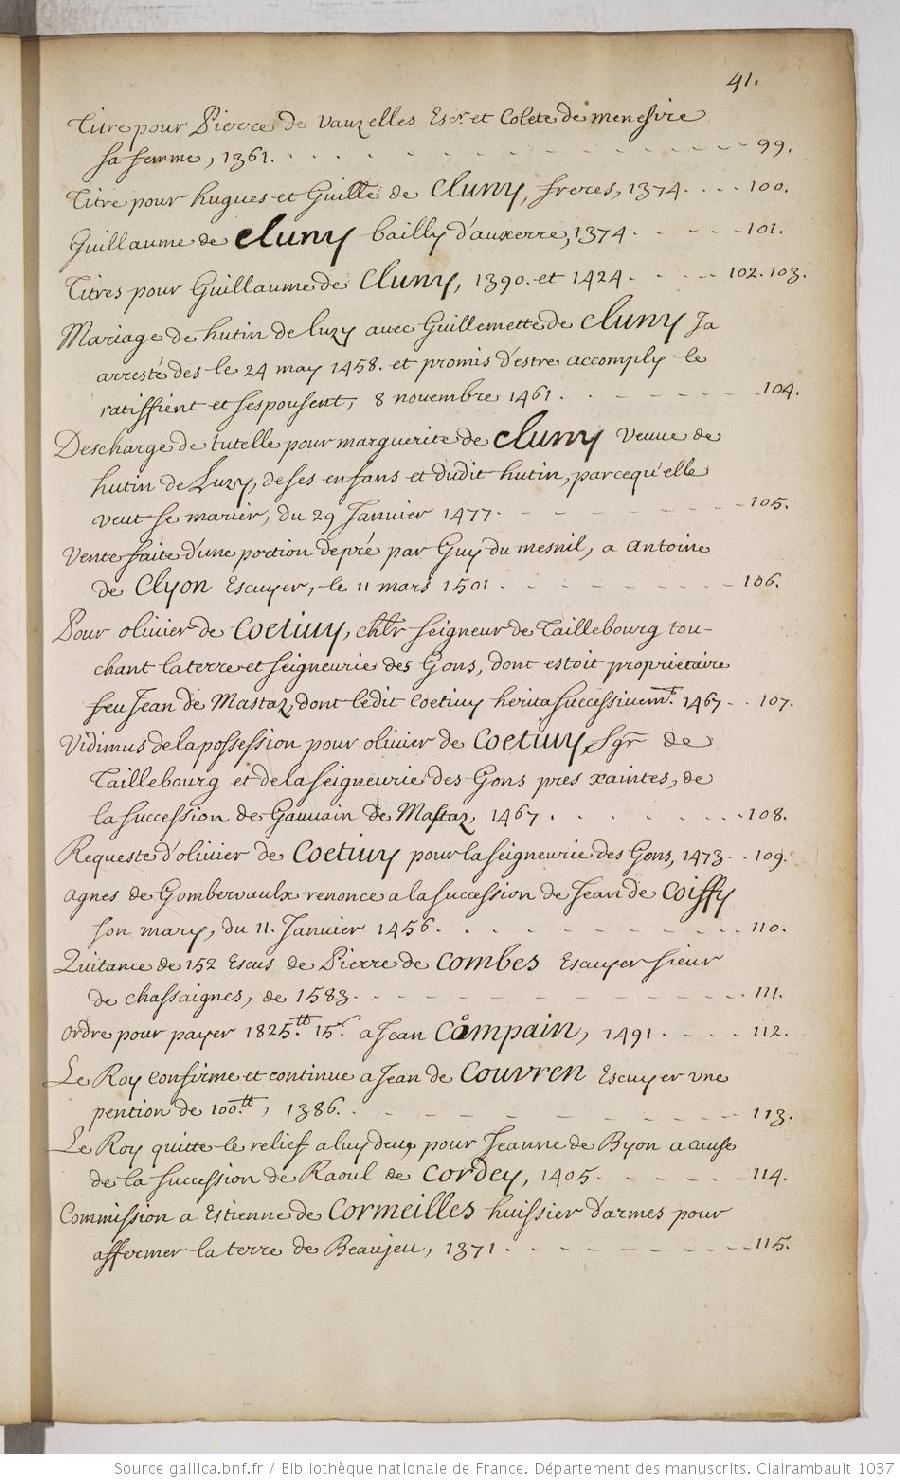 41.
Titre pour Pierre de Vauzelles Escr et Colete de menesire
sa femme, 1361. 99.
Titre pour hugues et Guille de Cluny, freres, 1374. 100.
Guillaume de Cluny bailly d'auxerre, 1374. 101.
Titres pour Guillaume de Cluny, 1390. et 1424. 102. 103.
Mariage de hutin de luzy avec Guillemette de Cluny Ja
arresté des le 24 may 1458. et promis d'estre accomply le
ratiffient et s'espousent, 8 novembre 1461. 104.
Descharge de tutelle pour marguerite de Cluny Veuve de
hutin de Luzy, de ses enfans et dudit hutin, parcequ'elle
veut se marier, du 29 Janvier 1477. 105.
Vente faite d'une portion de pré par Guy du mesnil, a Antoine
de Clyon Escuyer, le 11 mars 1501. 106.
Pour olivier de Coetivy, chlr seigneur de Taillebourg tou-
chant la terre et seigneurie des Gons, dont estoit proprietaire
feu Jean de Mastaz, dont ledit Coetivy herita successivemt. 1467. 107.
Vidimus de la possession pour olivier de Coetivy, Sgr de
Taillebourg et de la seigneurie des Gons pres xaintes, de
la succession de Gauvain de Mastaz, 1467. 108.
Requeste d'olivier de Coetivy pour la seigneurie des Gons, 1473. 109.
agnes de Gombervaulx renonce a la succession de Jean de Coiffy
son mary, du 11. Janvier 1456. 110.
Quitance de 152 Escus de Pierre de Combes Escuyer sieur
de chassaignes, de 1583. 111.
Ordre pour payer 1825.tt 15.s a Jean Compain, 1491. 112.
Le Roy confirme et continue a Jean de Couvren Escuyer une
pention de 100.tt, 1386. 113.
Le Roy quitte le relief a luy deu, pour Jeanne de Byon a cause
de la succession de Raoul de Cordey, 1405. 114.
Commission a Estienne de Cormeilles huissier d'armes pour
affermer la terre de Beaujeu, 1371. 115.
Source gallica.bnf.fr / Bibliothèque nationale de France. Département des manuscrits. Clairambault 1037